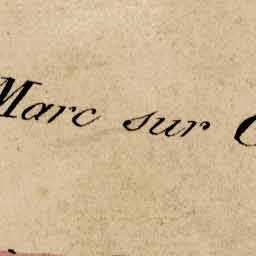 Marc sur